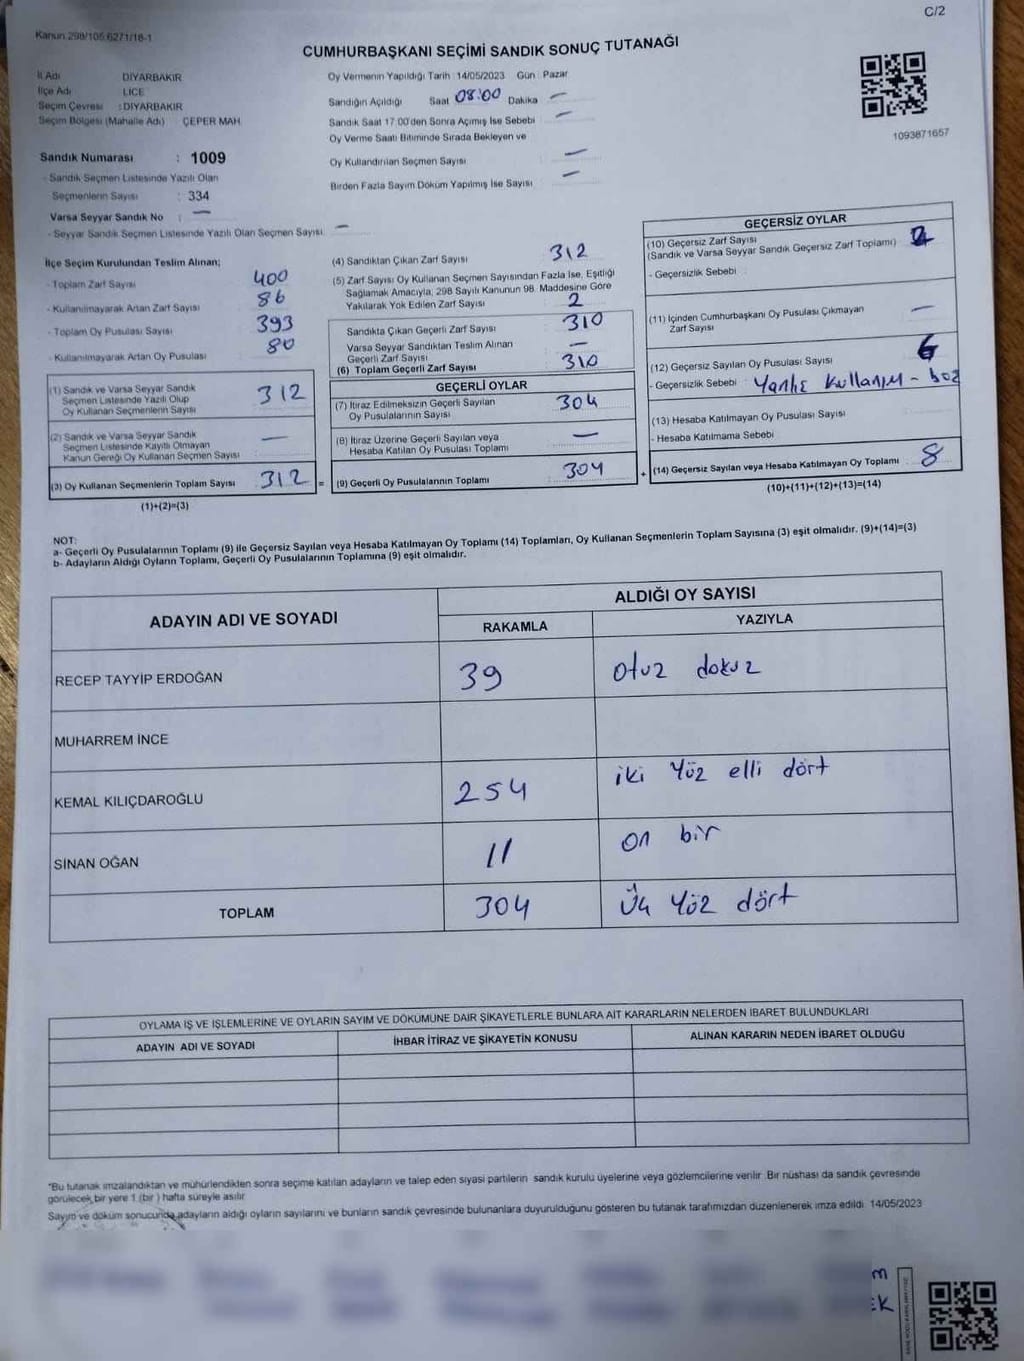 C/2
Kanun.298/105.6271/18-1
CUMHURBAŞKANI SEÇİMİ SANDIK SONUÇ TUTANAĞI
İl Adı DİYARBAKIR
İlçe Adı LİCE
Seçim Çevresi : DİYARBAKIR
Seçim Bölgesi (Mahalle Adı) ÇEPER MAH.
Sandık Numarası : 1009
- Sandık Seçmen Listesinde Yazılı Olan
Seçmenlerin Sayısı : 334
Varsa Seyyar Sandık No : —
- Seyyar Sandık Seçmen Listesinde Yazılı Olan Seçmen Sayısı: —
Oy Vermenin Yapıldığı Tarih : 14/05/2023 Gün : Pazar
Sandığın Açıldığı Saat 08:00 Dakika —
Sandık Saat 17:00'den Sonra Açımış İse Sebebi —
Oy Verme Saati Bitiminde Sırada Bekleyen ve
Oy Kullandırılan Seçmen Sayısı —
Birden Fazla Sayım Döküm Yapılmış İse Sayısı —
1093871657
İlçe Seçim Kurulundan Teslim Alınan;
- Toplam Zarf Sayısı 400
- Kullanılmayarak Artan Zarf Sayısı 86
- Toplam Oy Pusulası Sayısı 393
- Kullanılmayarak Artan Oy Pusulası 80
(1) Sandık ve Varsa Seyyar Sandık
Seçmen Listesinde Yazılı Olup
Oy Kullanan Seçmenlerin Sayısı 312
(2) Sandık ve Varsa Seyyar Sandık
Seçmen Listesinde Kayıtlı Olmayan
Kanun Gereği Oy Kullanan Seçmen Sayısı —
(3) Oy Kullanan Seçmenlerin Toplam Sayısı 312 =
(1)+(2)=(3)
(4) Sandıktan Çıkan Zarf Sayısı 312
(5) Zarf Sayısı Oy Kullanan Seçmen Sayısından Fazla İse, Eşitliği
Sağlamak Amacıyla, 298 Sayılı Kanunun 98. Maddesine Göre
Yakılarak Yok Edilen Zarf Sayısı 2
Sandıkta Çıkan Geçerli Zarf Sayısı 310
Varsa Seyyar Sandıktan Teslim Alınan
Geçerli Zarf Sayısı —
(6) Toplam Geçerli Zarf Sayısı 310
GEÇERLİ OYLAR
(7) İtiraz Edilmeksizin Geçerli Sayılan
Oy Pusulalarının Sayısı 304
(8) İtiraz Üzerine Geçerli Sayılan veya
Hesaba Katılan Oy Pusulası Toplamı —
(9) Geçerli Oy Pusulalarının Toplamı 304 +
GEÇERSİZ OYLAR
(10) Geçersiz Zarf Sayısı 2
(Sandık ve Varsa Seyyar Sandık Geçersiz Zarf Toplamı)
- Geçersizlik Sebebi :
(11) İçinden Cumhurbaşkanı Oy Pusulası Çıkmayan
Zarf Sayısı —
(12) Geçersiz Sayılan Oy Pusulası Sayısı 6
- Geçersizlik Sebebi : Yanlış kullanım - boz
(13) Hesaba Katılmayan Oy Pusulası Sayısı
- Hesaba Katılmama Sebebi :
(14) Geçersiz Sayılan veya Hesaba Katılmayan Oy Toplamı 8
(10)+(11)+(12)+(13)=(14)
NOT:
a- Geçerli Oy Pusulalarının Toplamı (9) ile Geçersiz Sayılan veya Hesaba Katılmayan Oy Toplamı (14) Toplamları, Oy Kullanan Seçmenlerin Toplam Sayısına (3) eşit olmalıdır. (9)+(14)=(3)
b- Adayların Aldığı Oyların Toplamı, Geçerli Oy Pusulalarının Toplamına (9) eşit olmalıdır.
ADAYIN ADI VE SOYADI
ALDIĞI OY SAYISI
RAKAMLA YAZIYLA
RECEP TAYYİP ERDOĞAN 39 otuz dokuz
MUHARREM İNCE
KEMAL KILIÇDAROĞLU 254 iki yöz elli dört
SİNAN OĞAN 11 on bir
TOPLAM 304 Üç yöz dört
OYLAMA İŞ VE İŞLEMLERİNE VE OYLARIN SAYIM VE DÖKÜMÜNE DAİR ŞİKAYETLERLE BUNLARA AİT KARARLARIN NELERDEN İBARET BULUNDUKLARI
ADAYIN ADI VE SOYADI İHBAR İTİRAZ VE ŞİKAYETİN KONUSU ALINAN KARARIN NEDEN İBARET OLDUĞU
*Bu tutanak imzalandıktan ve mühürlendikten sonra seçime katılan adayların ve talep eden siyasi partilerin sandık kurulu üyelerine veya gözlemcilerine verilir. Bir nüshası da sandık çevresinde
görülecek bir yere 1 (bir) hafta süreyle asılır.
Sayım ve döküm sonucunda adayların aldığı oyların sayılarını ve bunların sandık çevresinde bulunanlara duyurulduğunu gösteren bu tutanak tarafımızdan düzenlenerek imza edildi. 14/05/2023